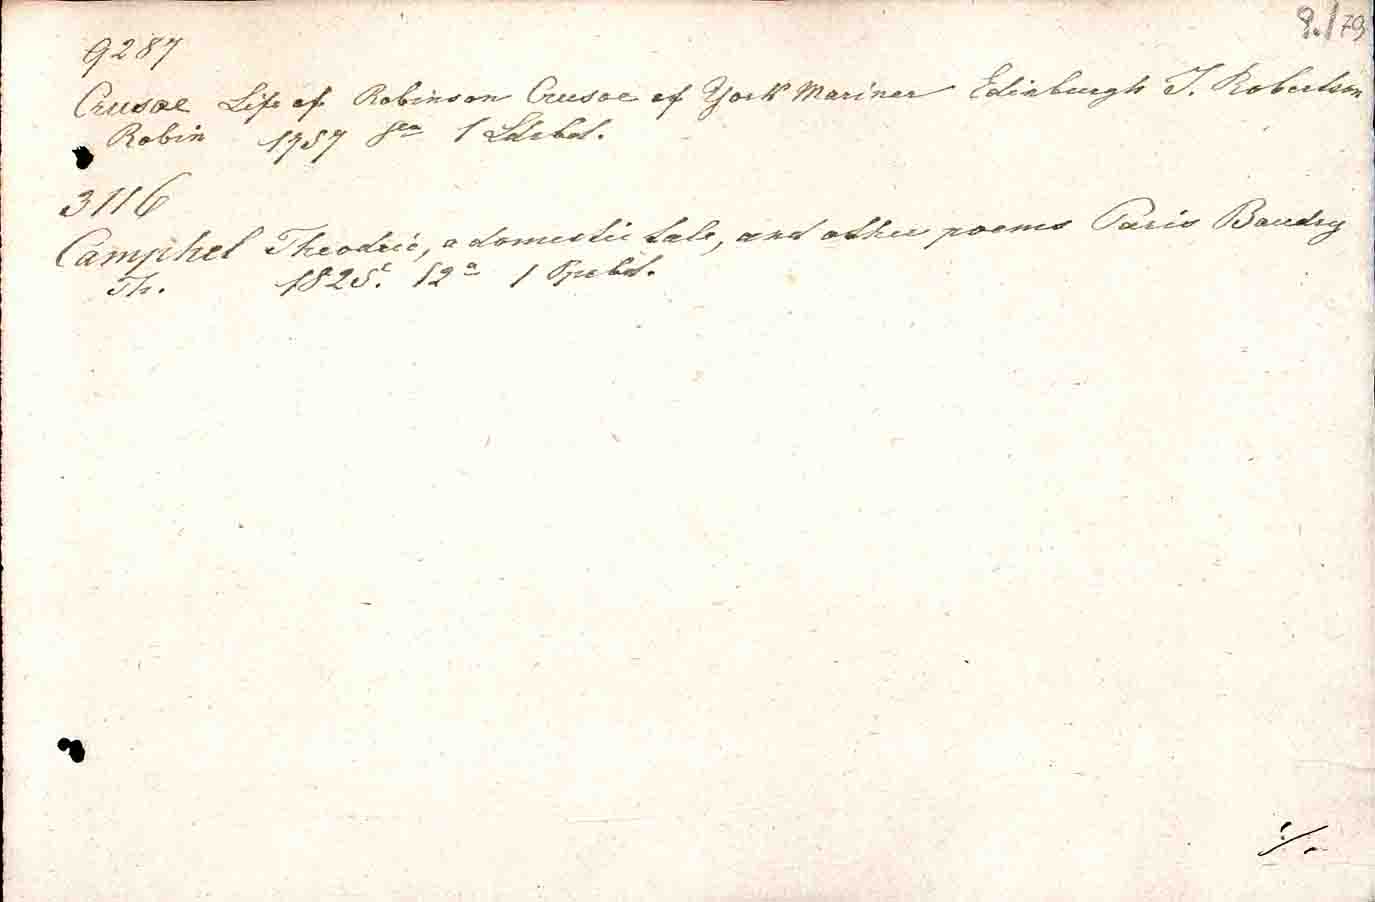 9./79
9287
Crusoe Life of Robinson Crusoe of York Mariner Edinburgh T. Robertson
Robin 1757 8ca 1 Ldrbd.
3116
Camphel Theodric, a domestic tale, and other poems Paris Baudry
Th. 1825. 12a 1 Ppebd.